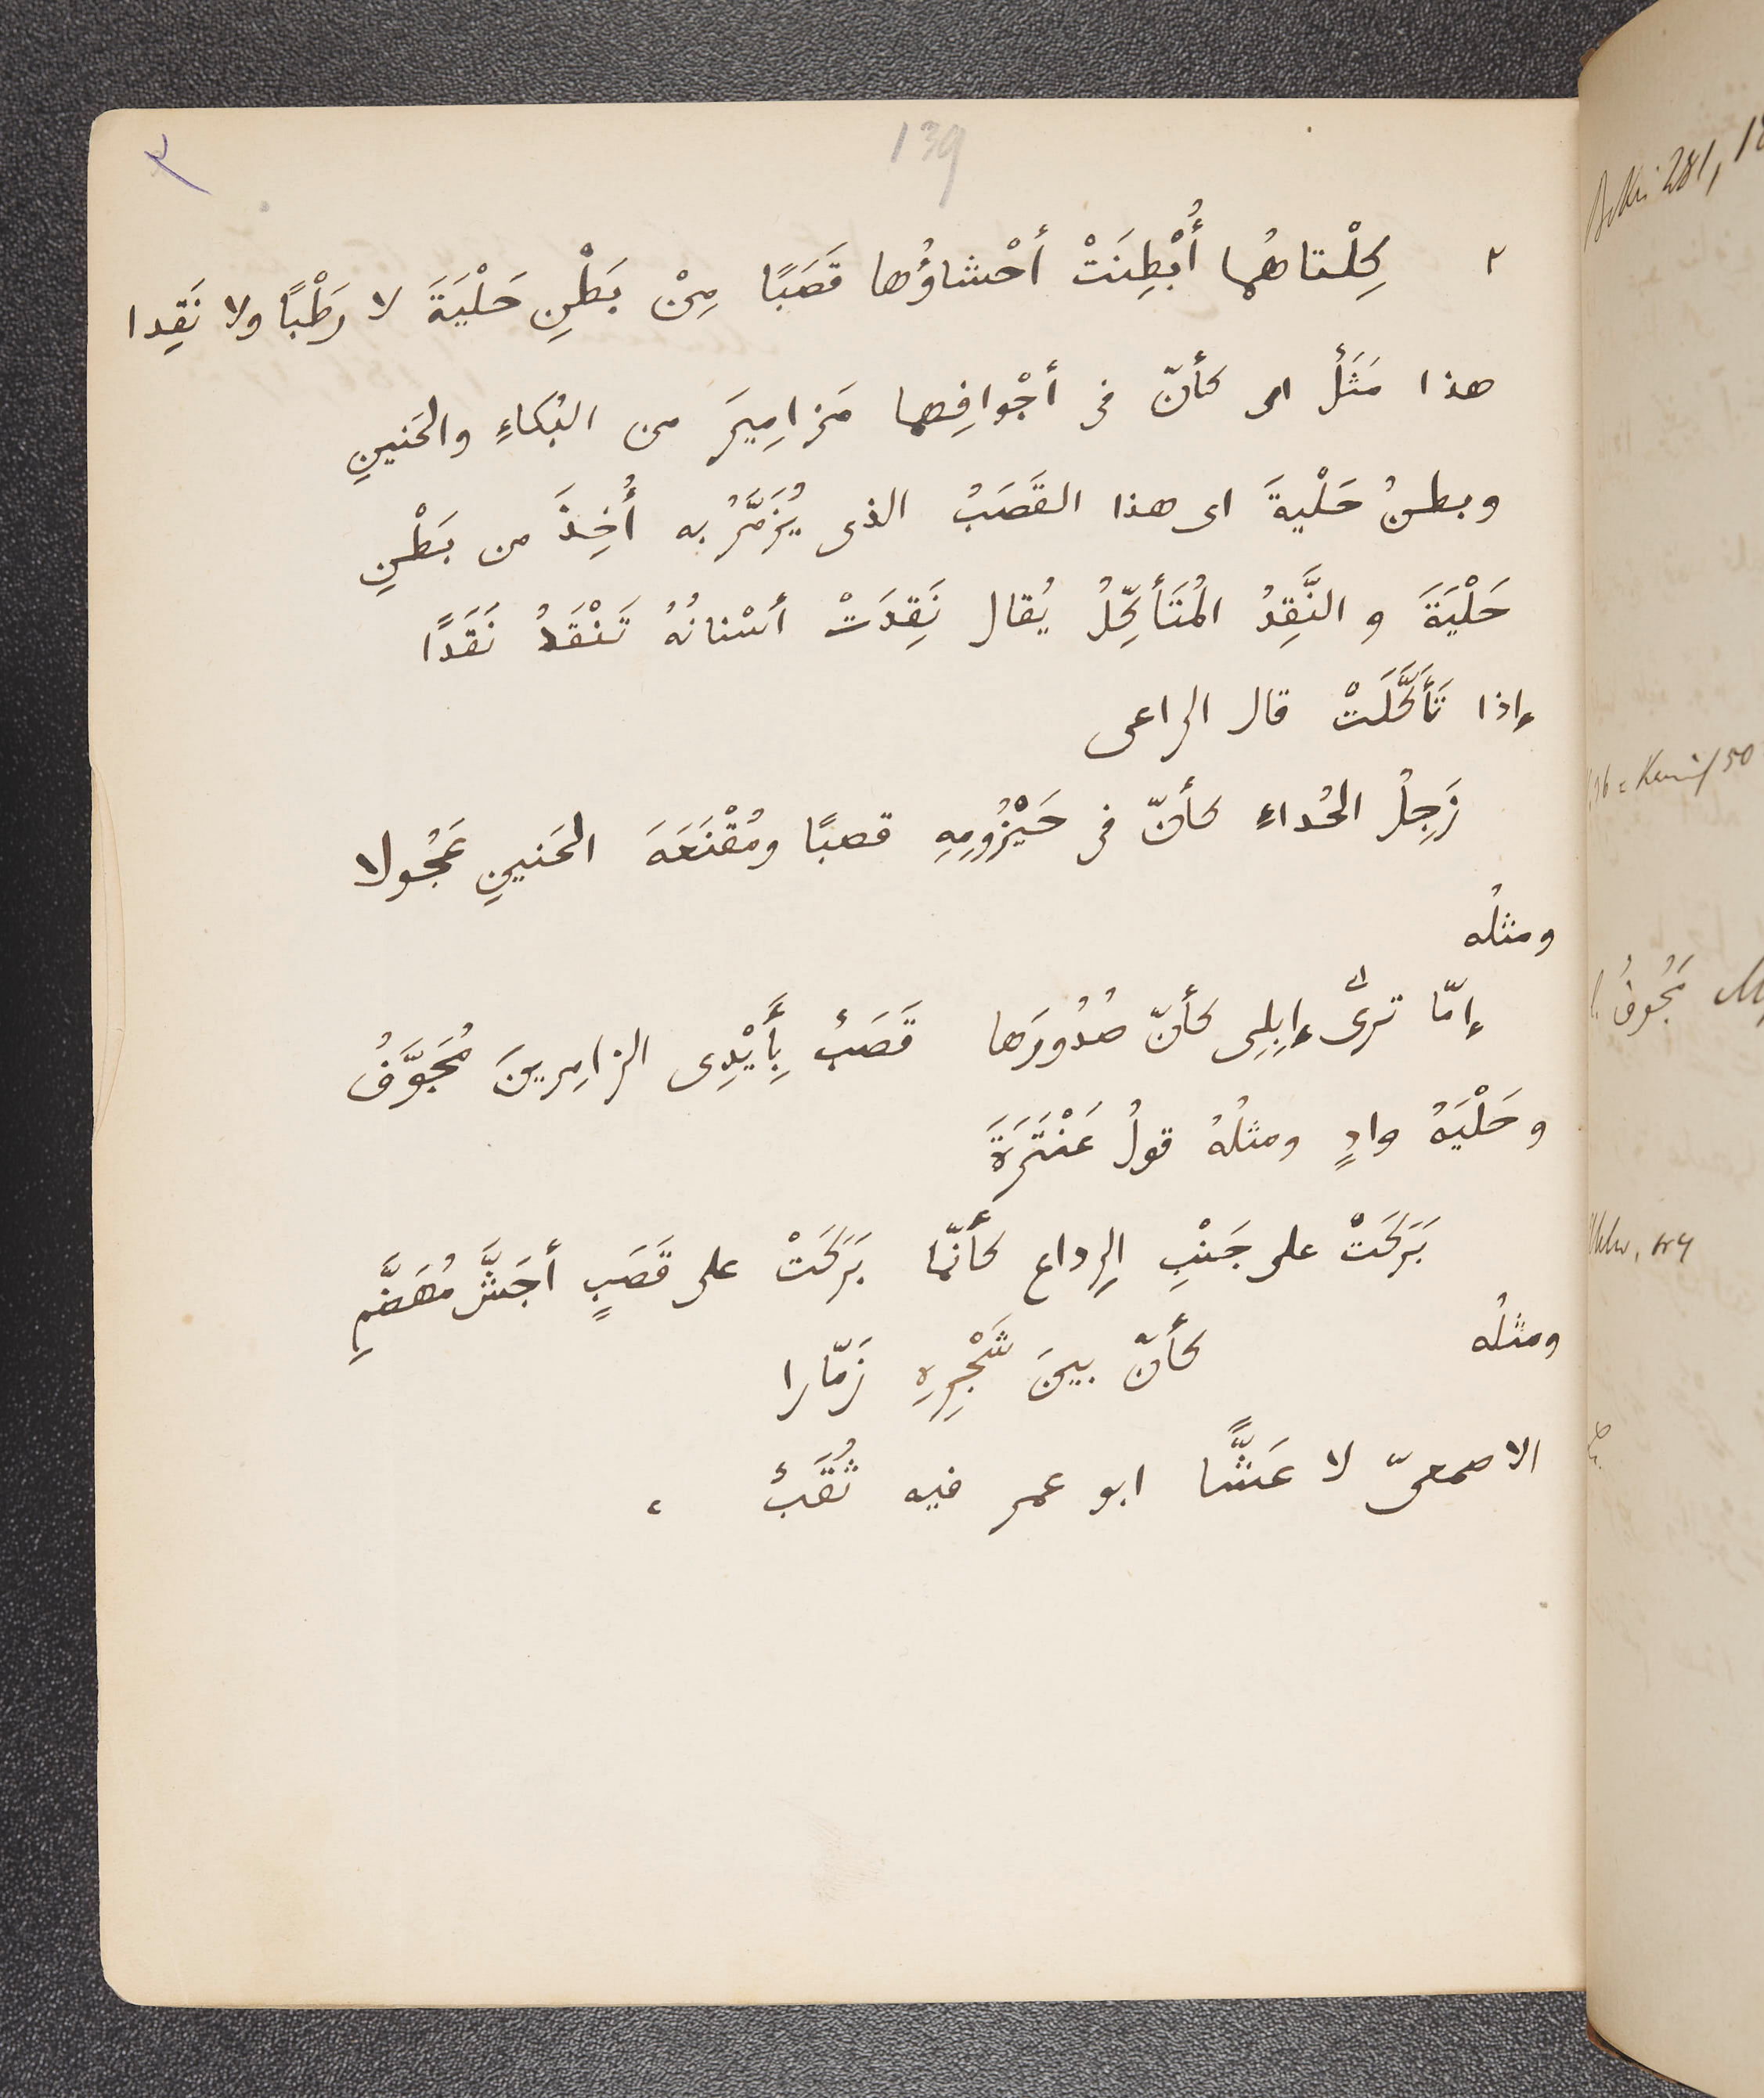 139
٢
٢ كِلْتاهُما أُبْطِنَتْ أحْشاؤُها قَصَبًا مِنْ بَطْنِ حَلْيَةَ لا رَطْبًا ولا نَقِدا
هذا مَثَلٌ اى كأنّ فى أجْوافِهما مَزامِيرَ من البُكاءِ والحَنينِ
وبطنُ حَلْيةَ اى هذا القَصَبُ الذى يُزَمَّرُ به أُخِذَ من بَطْنِ
حَلْيَةَ و النَّقِدُ المُتَأَكِّلُ يُقال نَقِدَتْ أسْنانُهُ تَنْقَدُ نَقَدًا
إذا تَأَكَّلَتْ قال الراعى
زَجِلُ الحُداءِ كأنّ فى حَيْزُومِهِ قصبًا ومُقْنَعَةَ الحَنينِ عَجُولا
ومثلُه
إمّا ترىْ إبِلِى كأنّ صُدُورَها قَصَبٌ بِأَيْدِى الزامِرينَ مُجَوَّفُ
وحَلْيَةُ وادٍ ومثلُهُ قولُ عَنْتَرَةَ
بَرَكَتْ على جَنْبِ الرِداع كأنّما بَرَكَتْ على قَصَبٍ أجَشَّ مُهَضَّمِ
ومثلُه كأنّ بينَ شَجْرِهِ زَمّارا
الاصمعىّ لا عَشًّا ابو عمر فيه ثُقَبٌ ،
281, 18
50
مَجُوفُ